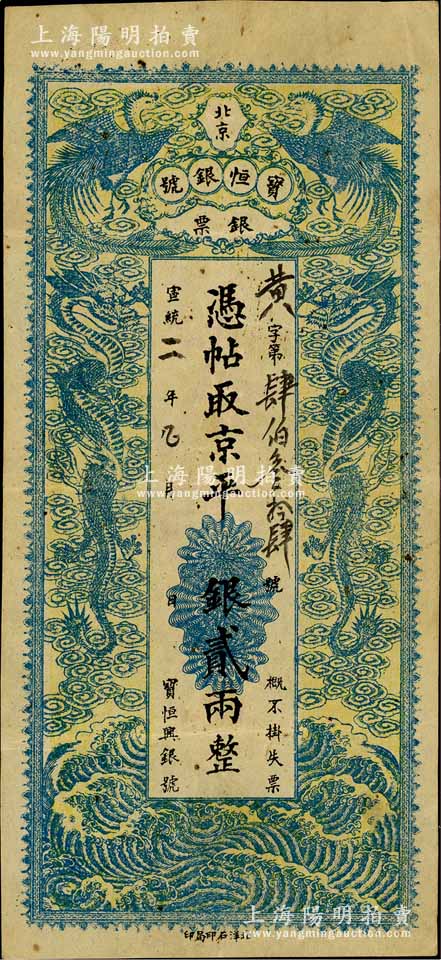 上海陽明拍賣
www.yangmingauction.com
北京
寶恒銀號
銀票
黃字第肆伯叁拾肆號
概不掛失票
憑帖取京平銀貳兩整
宣統二年 月 日
寶恒興銀號
上海陽明拍賣
www.yangmingauction.com
北洋石印局印
上海陽明拍賣
www.yangmingauction.com